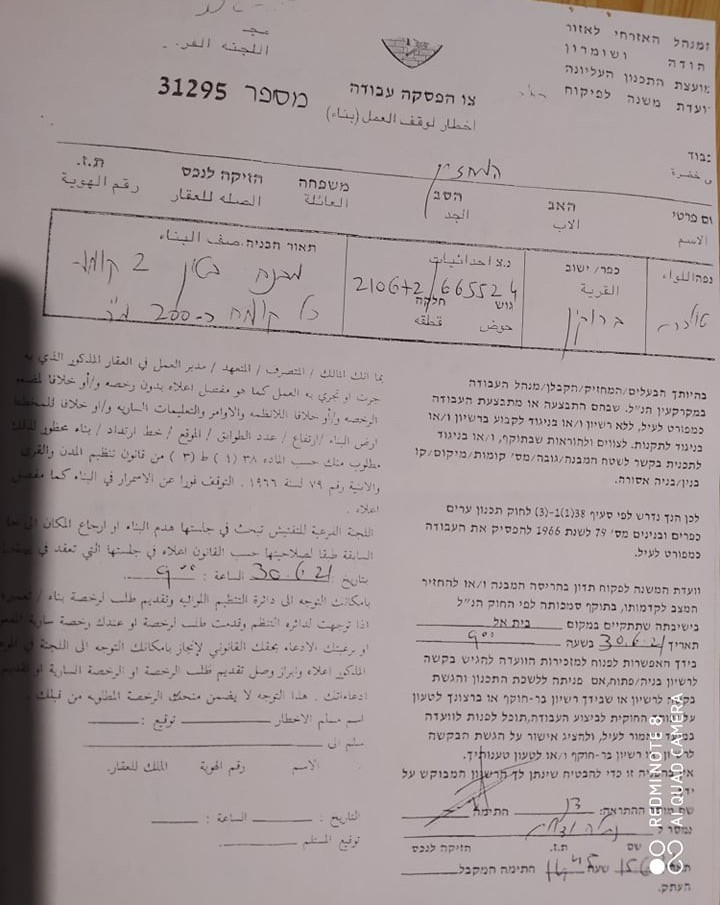 המנהל האזרחי לאזור
יהודה ושומרון
מועצת התכנון העליונה
ועדת משנה לפיקוח
اللجنه الفر
צו הפסקה עבודה
اخطار لوقف العمل (بناء)
מספר 31295
המחזיק
שם פרטי
האב
הסב
משפחה
הזיקה לנכס
ת.ז.
الاسم
الاب
الجد
العائلة
الصله للعقار
رقم الهوية
נפה اللواء
כפר/ ישוב
القرية
נ.צ احداثيات
210672/665524
גוש חלקה
حوض قطقه
תאור הבניה. صف البناء
טולכרם
ברוקין
מבנה בטון 2 קומות
כל קומה כ-200 מ"ר
בהיותך הבעלים/המחזיק/הקבלן/מנהל העבודה
במקרקעין הנ"ל. שבהם התבצעה או מתבצעת העבודה
כמפורט לעיל, ללא רשיון ו/או בניגוד לקבוע ברשיון ו/או
בניגוד לתקנות. לצווים ולהוראות שבתוקף, ו/או בניגוד
לתכנית בקשר לשטח המבנה/גובה/מס' קומות/מיקום/קו
בנין/בניה אסורה.
לכן הנך נדרש לפי סעיף 38(1)-(3) לחוק תכנון ערים
כפרים ובנינים מס' 79 לשנת 1966 להפסיק את העבודה
כמפורט לעיל.
וועדת המשנה לפקוח תדון בהריסה המבנה ו/או להחזיר
המצב לקדמותו, בתוקף סמכותה לפי החוק הנ"ל
בישיבתה שתתקיים במקום בית אל
תאריך 30.6.21 בשעה 9:00
בידך האפשרות לפנות למזכירות הוועדה להגיש בקשה
לרשיון בניה/פתוח, אם פניתה ללשכת התכנון והגשת
בקשה לרשיון או שבידך רשיון בר-חוקף או ברצונך לטעון
על החוקית לביצוע העבודה, תוכל לפנות לוועדה
במועד אמור לעיל, ולהציג אישור על הגשת הבקשה
לרשיון או רשיון בר-חוקף ו/או לטעון טענותיך.
אין בפניה זו כדי להבטיח שינתן לך הרשיון המבוקש על
ידך
שם מוסר ההתראה: החתימה
נמסר ל
שם ת.ז. הזיקה לנכס
שעה חתימה המקבל
העתק.
بما انك المالك / المتصرف / المتعهد / مدير العمل في العقار المذكور الذي به
جرت او تجري به العمل كما هو مفصل اعلاه بدون رخصه و/أو خلافا لمضمون
الرخصه و/أو خلافا للانظمه والاوامر والتعليمات الساريه و/او خلافا للمخطط
ارض البناء /ارتفاع / عدد الطوابق / الموقع / خط ارتداد / بناء محظور لذلك
مطلوب منك حسب الماده ٣٨ (١) ط (٣) من قانون تنظيم المدن والقرى
والابنية رقم ٧٩ لسنة ١٩٦٦ . التوقف فورا عن الاسمرار في البناء كما مفصل
اعلاه .
اللجنة الفرعية للتفتيش تبحث في جلستها هدم البناء او ارجاع المكان الى
السابقة طبقا لصلاحيتها حسب القانون اعلاه في جلستها التي تعقد في
بتاريخ : 30.6.21 الساعة : 9:00
بامكانك التوجه الى دائرة التنظيم اللوائيه وتقديم طلب لرخصة بناء /
اذا توجهت لدائره التنظم وقدمت طلب لرخصة او عندك رخصة سارية
او برغبتك الادعاء بحقك القانوني لإنجاز بامكانك التوجه الى اللجنة في
المذكور اعلاه وابراز وصل تقديم طلب الرخصة او الرخصة السارية او
ادعاءاتك . هذا التوجه لا يضمن منحك الرخصة المطلوبه من قبلك .
اسم مسلم الاخطار توقيع :
سلم الى
الاسم رقم الهوية الملك للعقار.
التاريخ : الساعة :
توقيع المستلم
REDMI NOTE 8
AI QUAD CAMERA